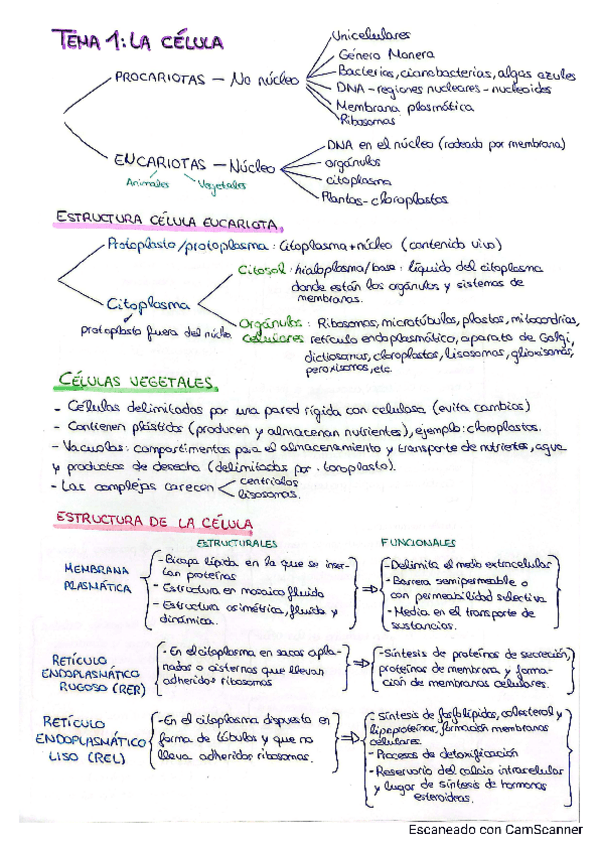 TEMA 1: LA CÉLULA
PROCARIOTAS - No núcleo
Unicelulares
Género Monera
Bacterias, cianobacterias, algas azules
DNA - regiones nucleares - nucleoides
Membrana plasmática
Ribosomas
EUCARIOTAS - Núcleo
Animales Vegetales
DNA en el núcleo (rodeado por membrana)
orgánulos
citoplasma
Plantas - cloroplastos
ESTRUCTURA CÉLULA EUCARIOTA.
Protoplasto/protoplasma: Citoplasma + núcleo (contenido vivo)
Citoplasma
protoplasto fuera del núcleo.
Citosol: hialoplasma/base: líquido del citoplasma
donde están los orgánulos y sistemas de
membranas.
Orgánulos: Ribosomas, microtúbulos, plastos, mitocondrias,
celulares retículo endoplasmático, aparato de Golgi,
dictiosomas, cloroplastos, lisosomas, glioxisomas,
peroxisomas, etc.
CÉLULAS VEGETALES.
- Células delimitadas por una pared rígida con celulosa (evita cambios)
- Contienen plástidos (producen y almacenan nutrientes), ejemplo: cloroplastos.
- Vacuolas: compartimentos para el almacenamiento y transporte de nutrientes, agua
y productos de desecho (delimitadas por tonoplasto).
- Las complejas carecen centriolos
lisosomas.
ESTRUCTURA DE LA CÉLULA
ESTRUCTURALES FUNCIONALES
MEMBRANA
PLASMÁTICA
- Bicapa lipída en la que se inser-
tan proteínas
- Estructura en mosaico fluido
- Estructura asimétrica, fluida y
dinámica.
- Delimita el medio extracelular
- Barrera semipermeable o
con permeabilidad selectiva
- Media en el transporte de
sustancias.
RETÍCULO
ENDOPLASMÁTICO
RUGOSO (RER)
- En el citoplasma en sacos apla-
nados o cisternas que llevan
adheridos ribosomas
- Síntesis de proteínas de secreción,
proteínas de membrana y forma-
ción de membranas celulares.
RETÍCULO
ENDOPLASMÁTICO
LISO (REL)
- En el citoplasma dispuesto en
forma de túbulos y que no
lleva adheridos ribosomas.
- Síntesis de fosfolípidos, colesterol y
lipoproteínas, formación membranas
celulares
- Procesos de detoxificación
- Reservorio del calcio intracelular
y lugar de síntesis de hormonas
esteroideas.
Escaneado con CamScanner